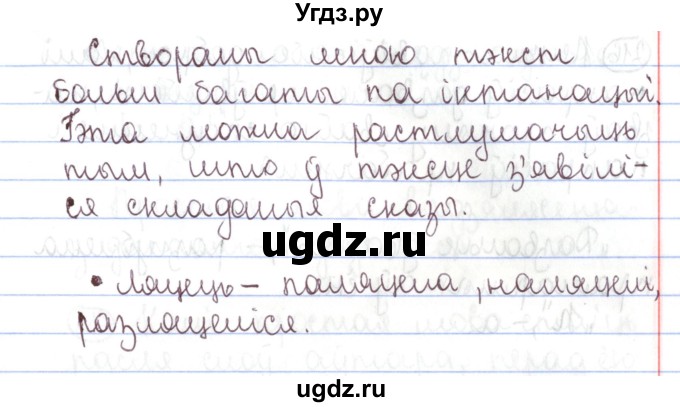 Угдз.ру
Створаны мною тэкст
больш багаты па інтанацыі.
Гэта можна растлумачыць
тым, што ў тэксце з'явілі-
ся складаныя сказы.
ugdz.ru
• Ляцець – паляцела, наляцелі,
разляцеліся.
ugdz.ru